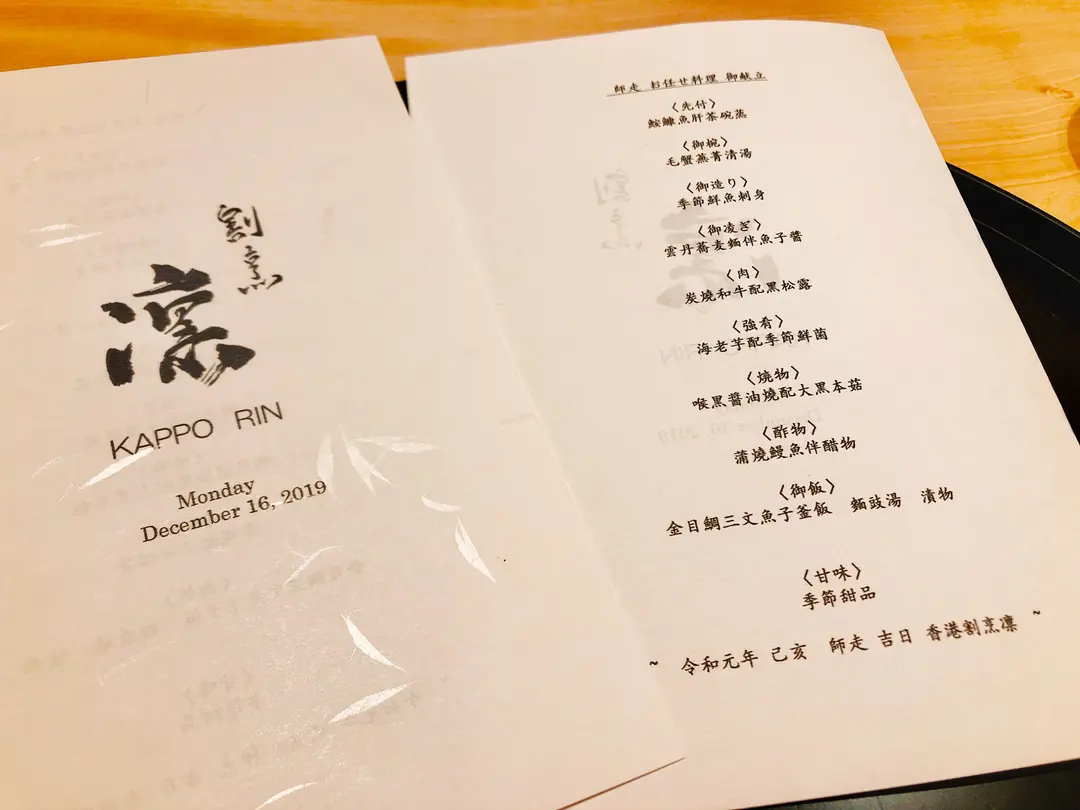 割烹
凛
KAPPO RIN
Monday
December 16, 2019
師走 お任せ料理 御献立
〈先付〉
鮟鱇魚肝茶碗蒸
〈御椀〉
毛蟹蕪菁清湯
〈御造り〉
季節鮮魚刺身
〈御凌ぎ〉
雲丹蕎麦麵伴魚子醬
〈肉〉
炭燒和牛配黑松露
〈強肴〉
海老芋配季節鮮菌
〈焼物〉
喉黑醬油燒配大黑本菇
〈酢物〉
蒲燒鰻魚伴醋物
〈御飯〉
金目鯛三文魚子釜飯　麵豉湯　漬物
〈甘味〉
季節甜品
~ 令和元年 己亥　師走 吉日 香港割烹凛 ~